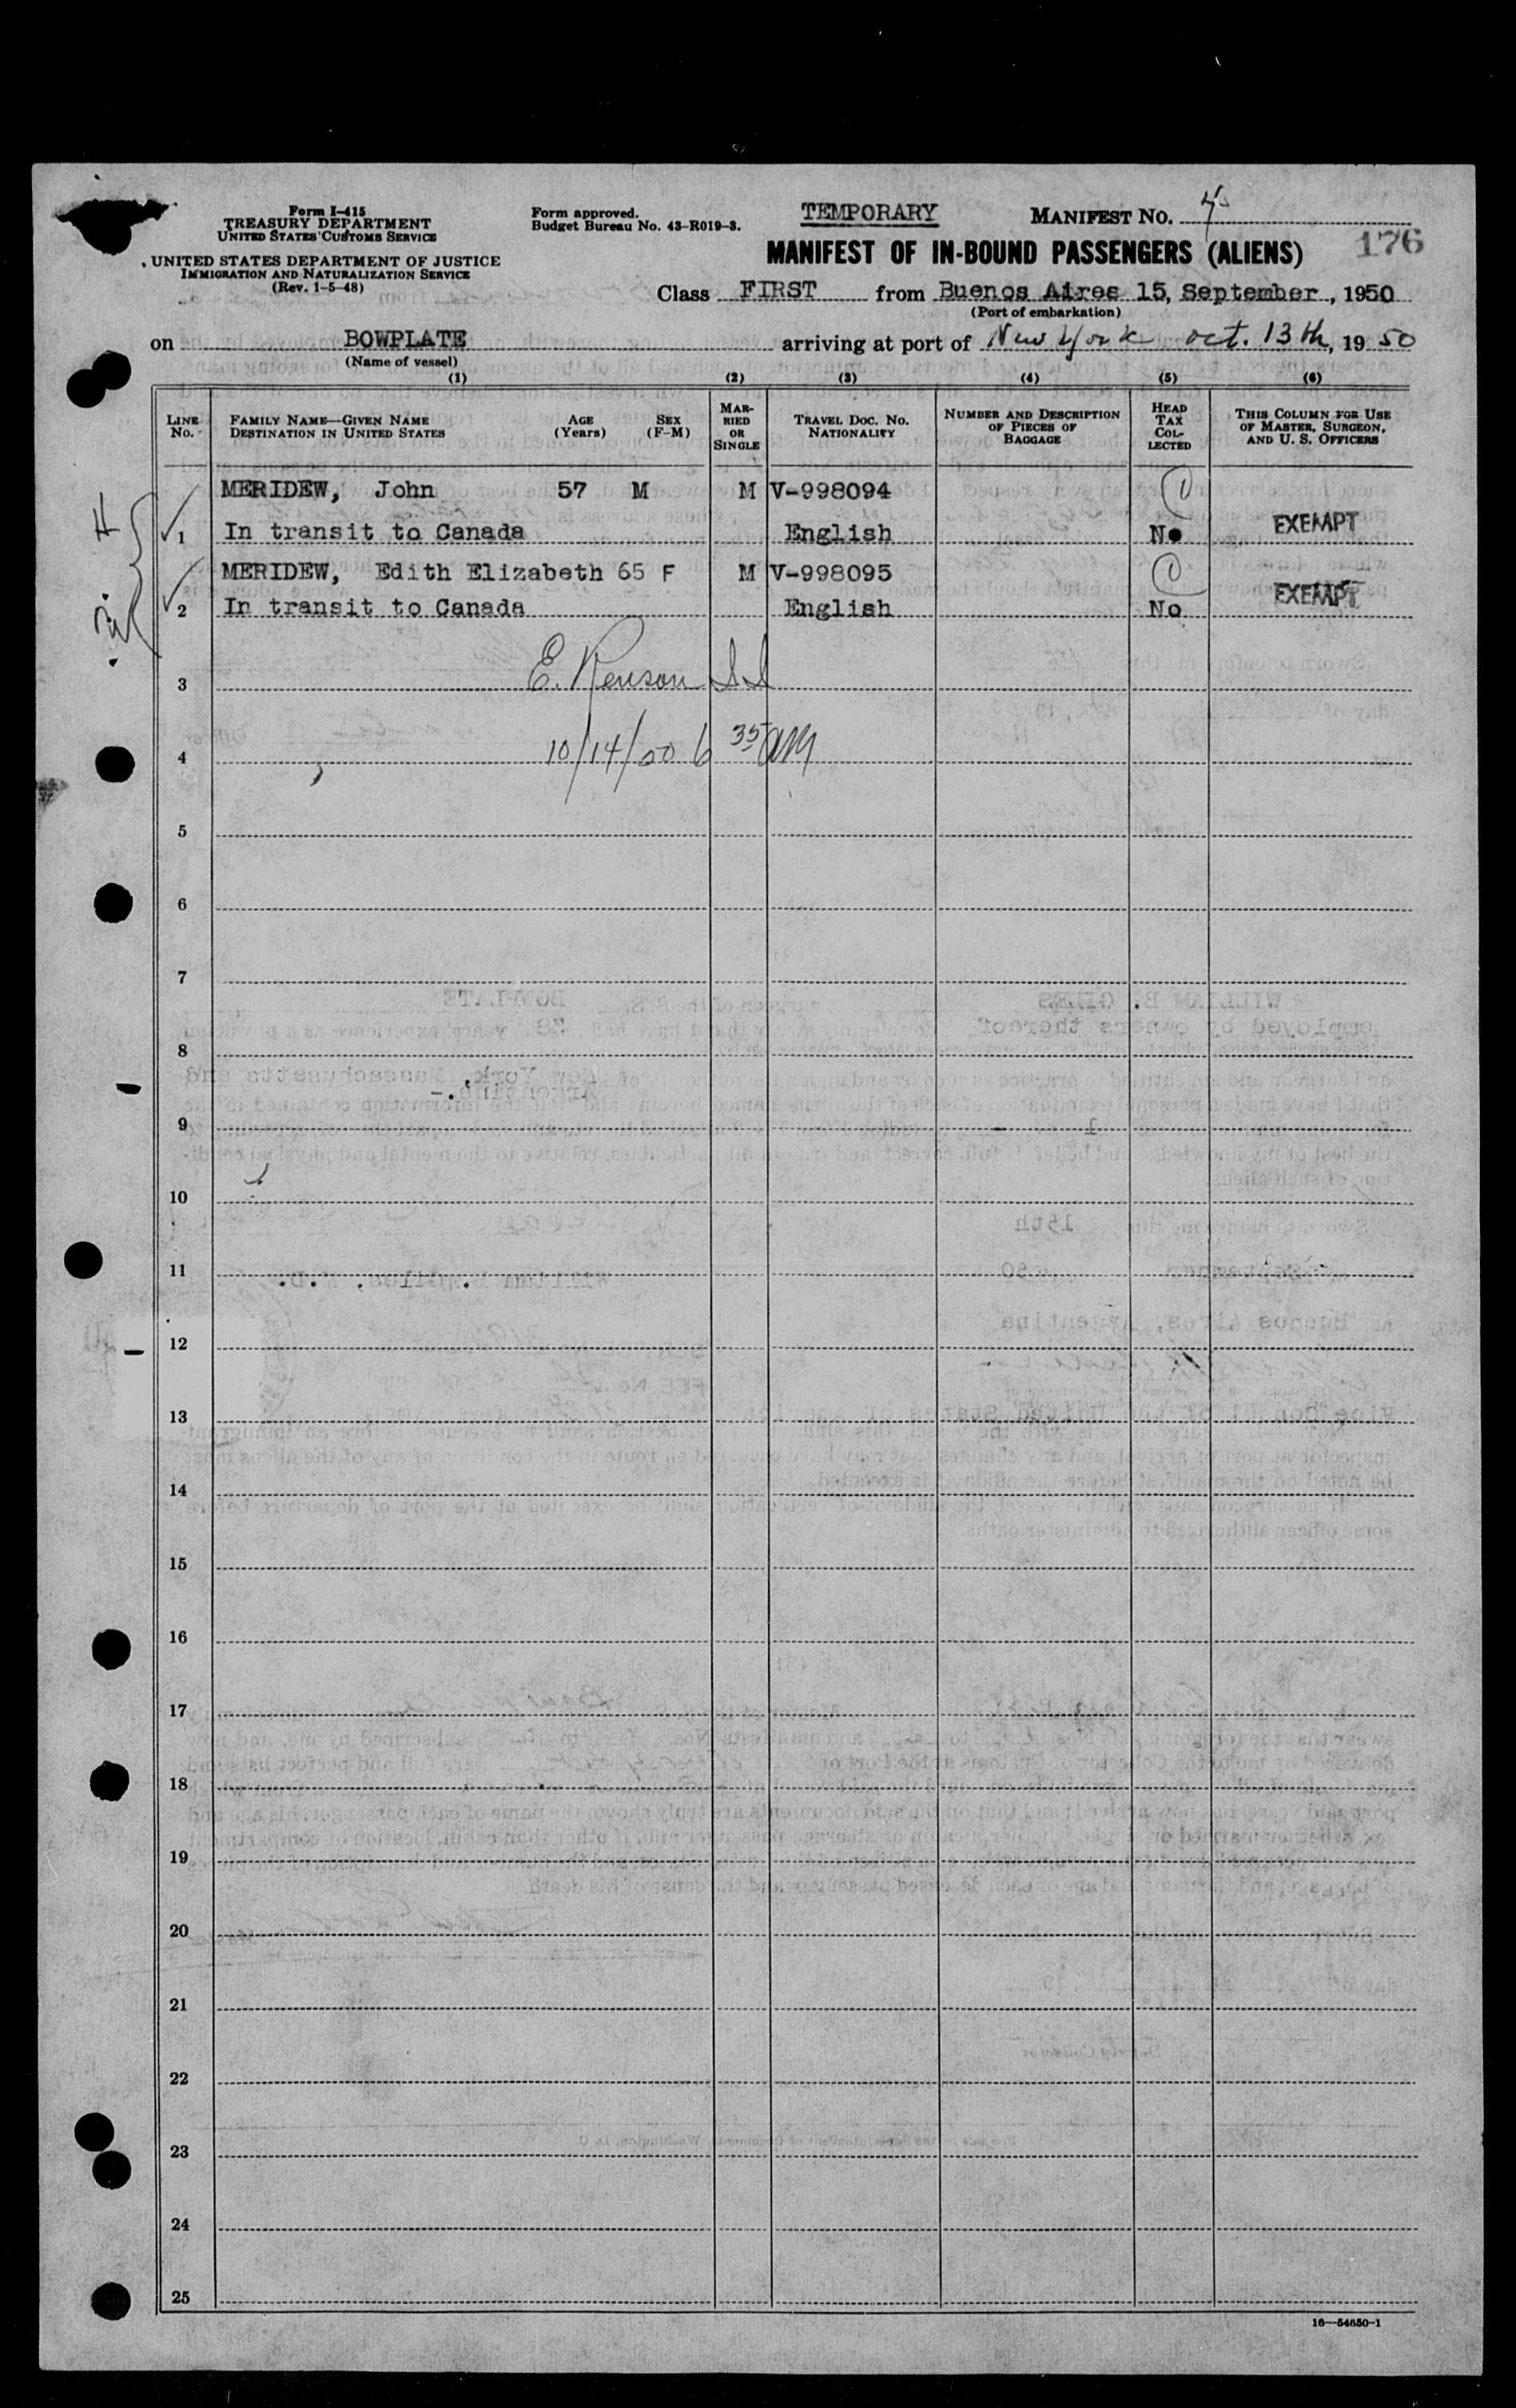 Form I-415
TREASURY DEPARTMENT
UNITED STATES CUSTOMS SERVICE
UNITED STATES DEPARTMENT OF JUSTICE
IMMIGRATION AND NATURALIZATION SERVICE
(Rev. 1-5-48)
Form approved.
Budget Bureau No. 43-R019-3.
TEMPORARY
MANIFEST NO.
176
MANIFEST OF IN-BOUND PASSENGERS (ALIENS)
Class FIRST from Buenos Aires 15, September, 1950
(Port of embarkation)
on BOWPLATE arriving at port of New York Oct. 13th, 1950
(Name of vessel)
(1) (2) (3) (4) (5) (6)
LINE No. FAMILY NAME—GIVEN NAME DESTINATION IN UNITED STATES AGE (Years) SEX (F-M) MARRIED OR SINGLE TRAVEL DOC. NO. NATIONALITY NUMBER AND DESCRIPTION OF PIECES OF BAGGAGE HEAD TAX COLLECTED THIS COLUMN FOR USE OF MASTER, SURGEON, AND U. S. OFFICERS
MERIDEW, John 57 M M V-998094
1 In transit to Canada English No EXEMPT
MERIDEW, Edith Elizabeth 65 F M V-998095
2 In transit to Canada English No EXEMPT
3 E.
4 10/14/50 6 35 AM
5
6
7
8
9
10
11
12
13
14
15
16
17
18
19
20
21
22
23
24
25
16—54650-1